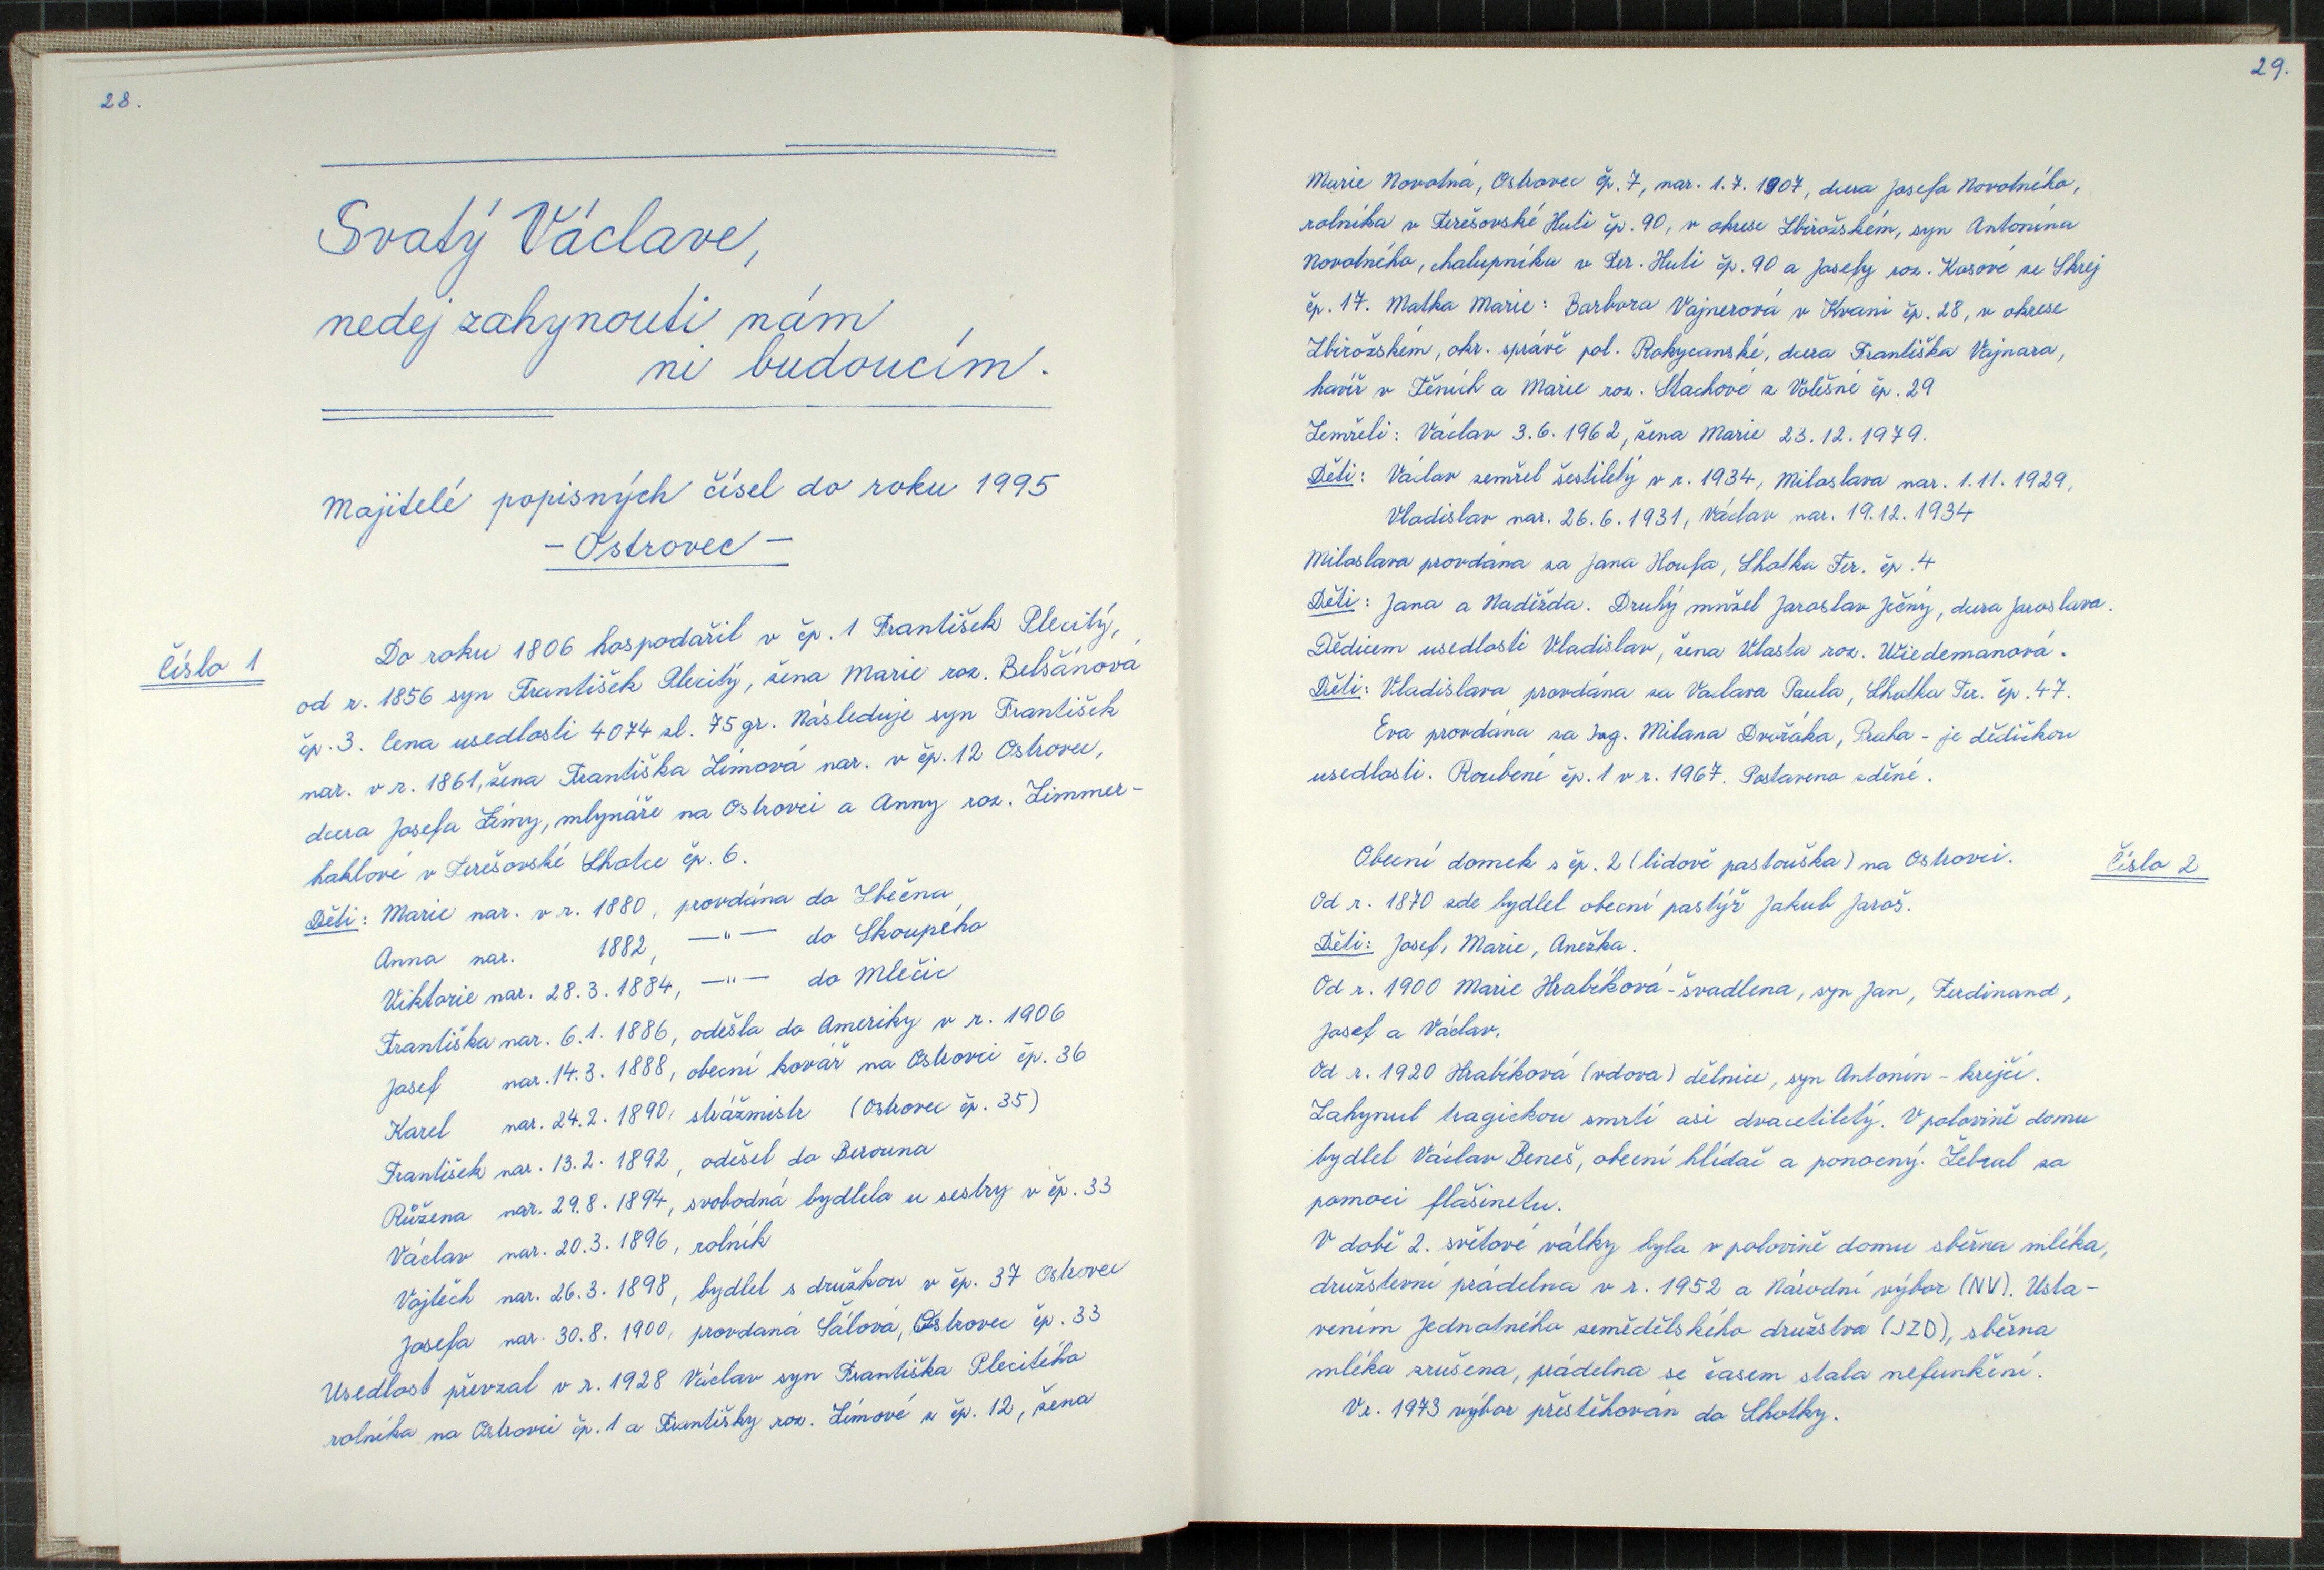 28.
Svatý Václave,
nedej zahynouti nám
ni budoucím.
Majitelé popisných čísel do roku 1995
- Ostrovec -
Číslo 1
Do roku 1806 hospodařil v čp. 1 František Plecitý,
od r. 1856 syn František Plecitý, žena Marie roz. Belšánová
čp. 3. Cena usedlosti 4074 zl. 75 gr. Následuje syn František
nar. v r. 1861, žena Františka Zímová nar. v čp. 12 Ostrovec,
dcera Josefa Zímy, mlynáře na Ostrovci a Anny roz. Zimmer-
haklové v Terešovské Lhotce čp. 6.
Děti: Marie nar. v r. 1880, provdána do Zbečna
Anna nar. 1882, —"— do Skoupého
Viktorie nar. 28.3.1884, —"— do Mlečic
Františka nar. 6.1.1886, odešla do Ameriky v r. 1906
Josef nar. 14.3.1888, obecní kovář na Ostrovci čp. 36
Karel nar. 24.2.1890, strážmistr (Ostrovec čp. 35)
František nar. 13.2.1892, odešel do Berouna
Růžena nar. 29.8.1894, svobodná bydlela u sestry v čp. 33
Václav nar. 20.3.1896, rolník
Vojtěch nar. 26.3.1898, bydlel s družkou v čp. 37 Ostrovec
Josefa nar. 30.8.1900, provdaná Sálová, Ostrovec čp. 33
Usedlost převzal v r. 1928 Václav syn Františka Plecitého
rolníka na Ostrovci čp. 1 a Františky roz. Zímové z čp. 12, žena
29.
Marie Novotná, Ostrovec čp. 7, nar. 1.7.1907, dcera Josefa Novotného,
rolníka v Terešovské Huti čp. 90, v okrese Zbirožském, syn Antonína
Novotného, chalupníka v Ter. Huti čp. 90 a Josefy roz. Kosové ze Skrej
čp. 17. Matka Marie: Barbora Vajnerová v Kvani čp. 28, v okrese
Zbirožském, okr. správě pol. Rokycanské, dcera Františka Vajnara,
havíř v Těních a Marie roz. Stachové z Volešné čp. 29
Zemřeli: Václav 3.6.1962, žena Marie 23.12.1979.
Děti: Václav zemřel šestiletý v r. 1934, Miloslava nar. 1.11.1929,
Vladislav nar. 26.6.1931, Václav nar. 19.12.1934
Miloslava provdána za Jana Houfa, Lhotka Ter. čp. 4
Děti: Jana a Naděžda. Druhý manžel Jaroslav Ječný, dcera Jaroslava.
Dědicem usedlosti Vladislav, žena Vlasta roz. Wiedemanová.
Děti: Vladislava provdána za Vaclava Paula, Lhotka Ter. čp. 47.
Eva provdána za Ing. Milana Dvořáka, Praha - je dědičkou
usedlosti. Roubené čp. 1 v r. 1967. Postaveno zděné.
Číslo 2
Obecní domek s čp. 2 (lidově pastouška) na Ostrovci.
Od r. 1870 zde bydlel obecní pastýř Jakub Jaroš.
Děti: Josef, Marie, Anežka.
Od r. 1900 Marie Hrabíková - švadlena, syn Jan, Ferdinand,
Josef a Václav.
Od r. 1920 Hrabíková (vdova) dělnice, syn Antonín - krejčí.
Zahynul tragickou smrtí asi dvacetiletý. V polovině domu
bydlel Václav Beneš, obecní hlídač a ponocný. Žebral za
pomoci flašinetu.
V době 2. světové války byla v polovině domu sběrna mléka,
družstevní prádelna v r. 1952 a Národní výbor (NV). Usta-
vením Jednotného zemědělského družstva (JZD), sběrna
mléka zrušena, prádelna se časem stala nefunkční.
V r. 1973 výbor přestěhován do Lhotky.